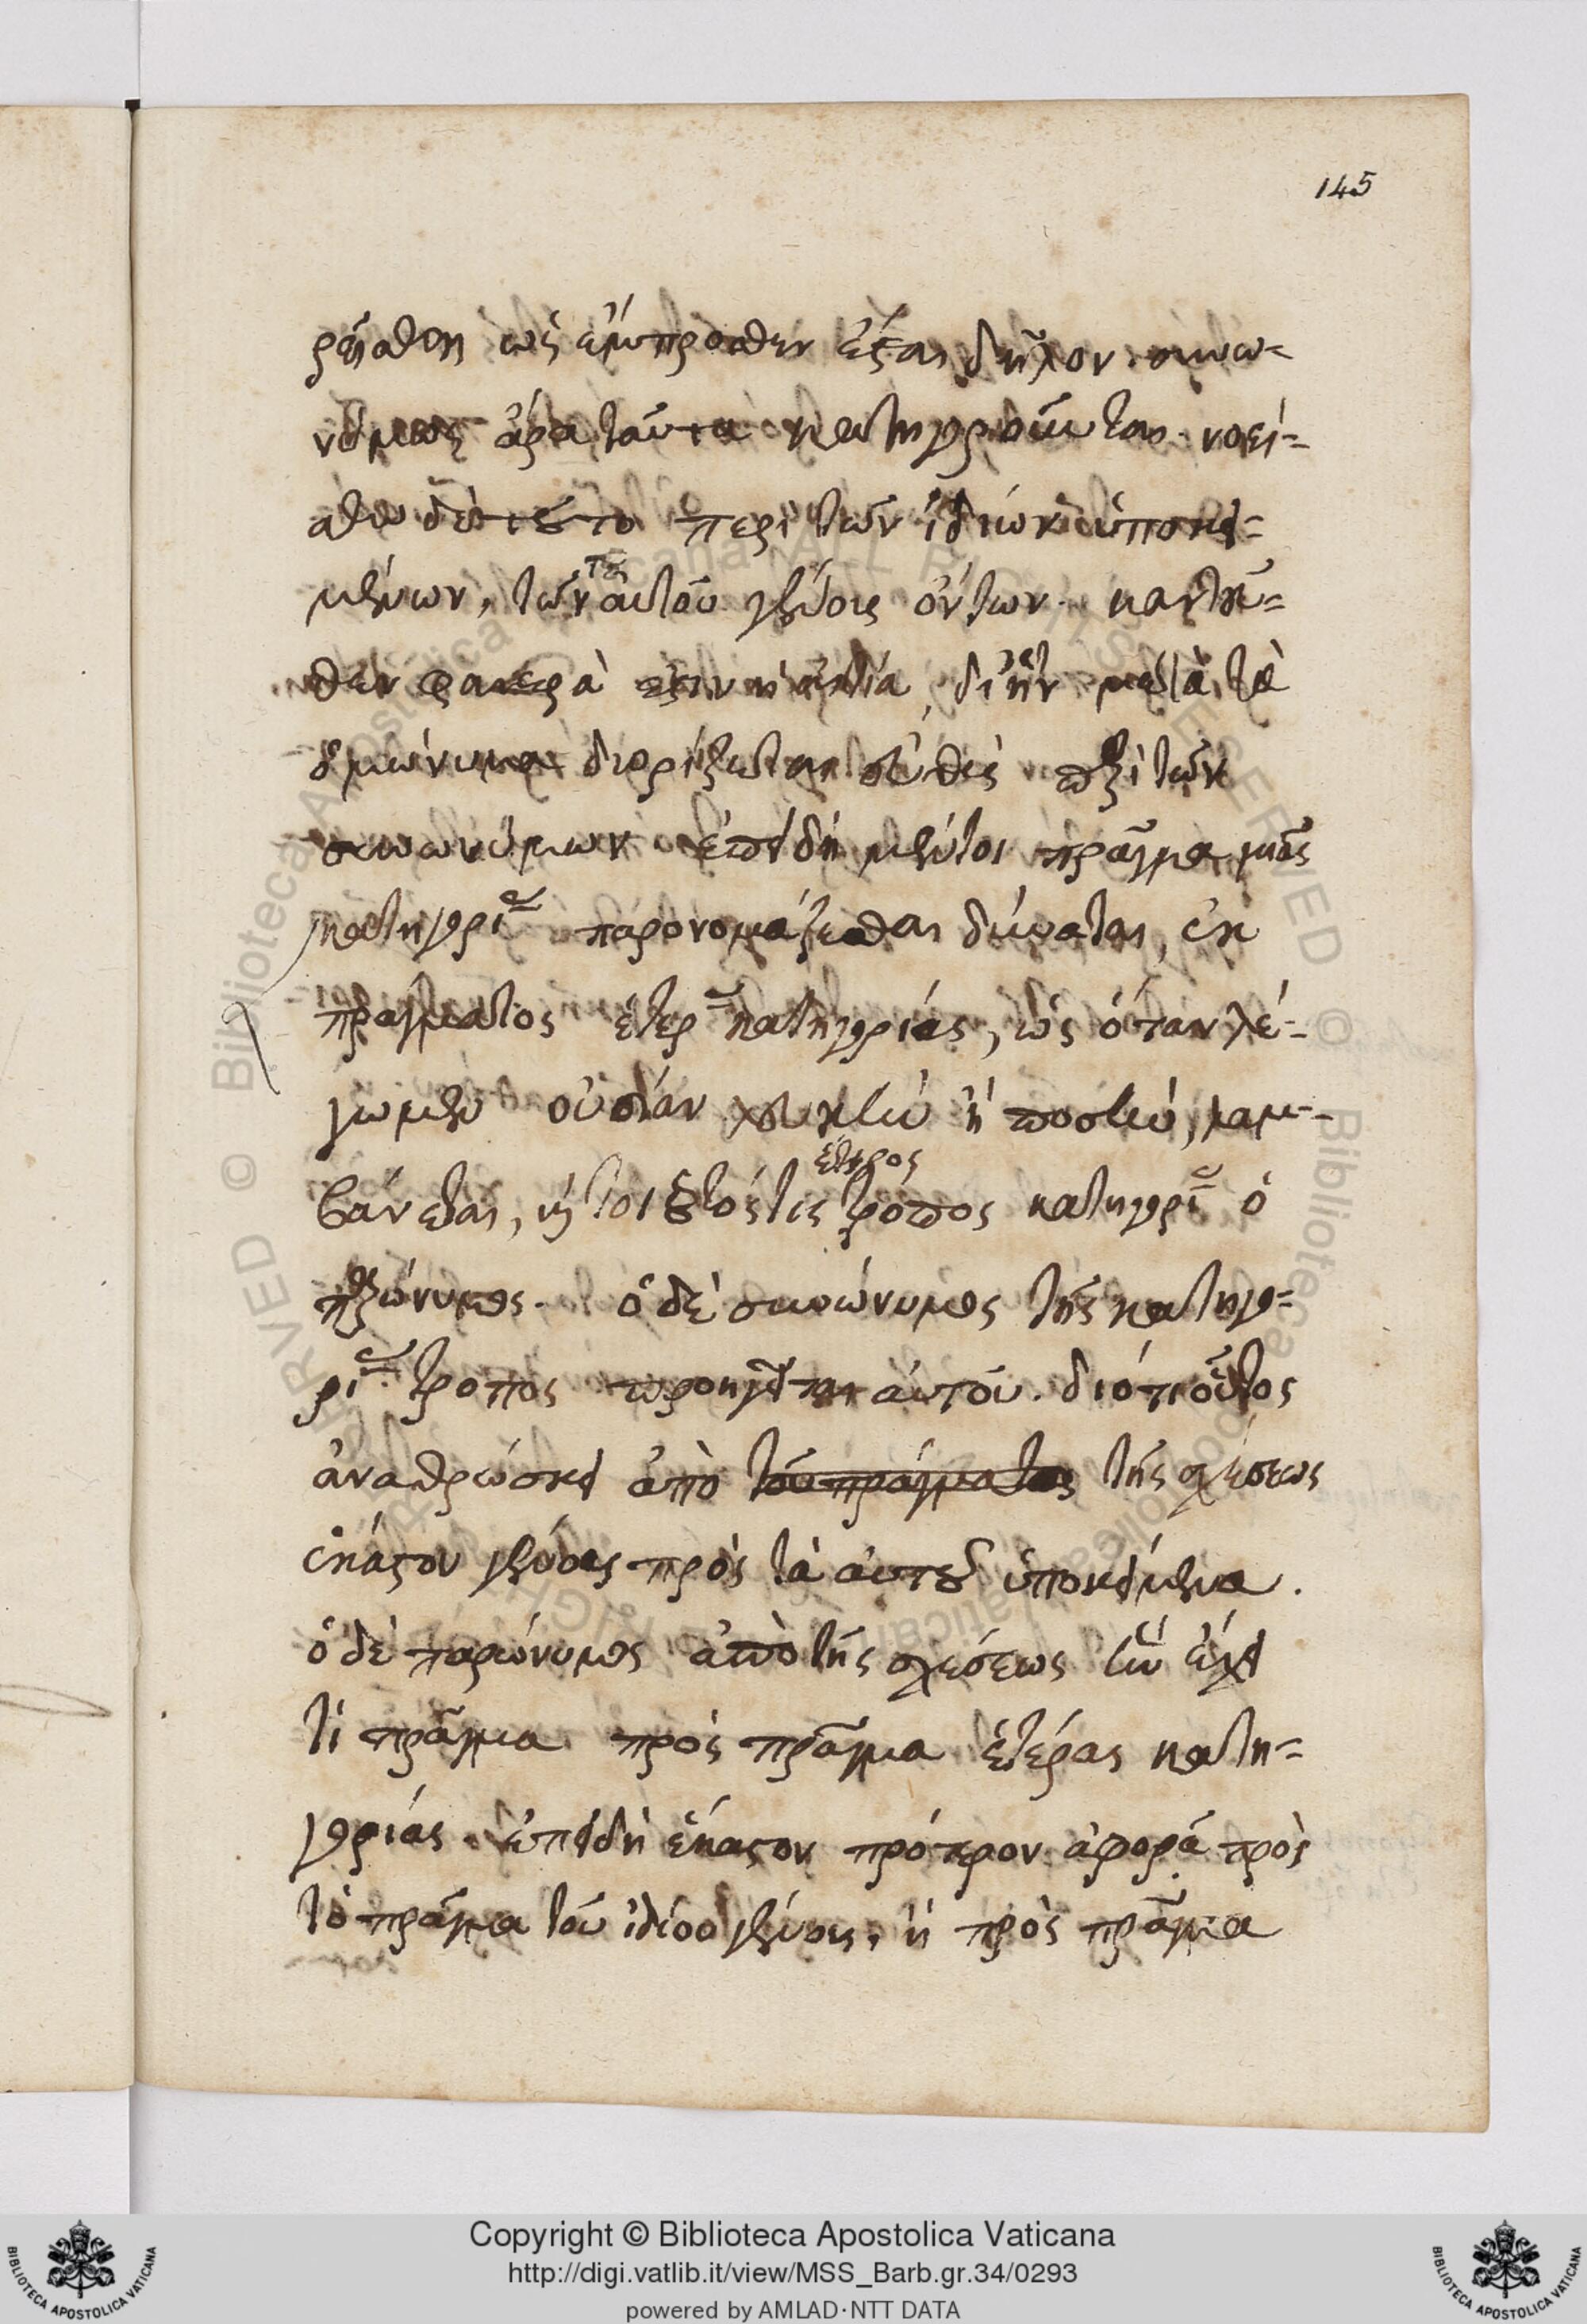 145
ρεῖσθαι ὡς ἔμπροσθεν ἔσται δῆλον. συνω-
νύμως ἄρα ταῦτα κατηγοροῦνται. νοεί-
σθω δὲ τοῦτο περὶ τῶν ἰδίων ὑποκει-
μένων, τῶν αὐτοῦ γένους ὄντων. κἀντεῦ-
θεν φανερὰ ἐστιν ἡ αἰτία, δι' ἣν μετὰ τὰ
ὁμώνυμα διορίζεται εὐθὺς περὶ τῶν
συνωνύμων. ἐπειδὴ μέντοι πρᾶγμα μιᾶς
κατηγορίας παρονομάζεσθαι δύναται, ἐκ
πράγματος ἑτέρας κατηγορίας, ὡς ὅταν λέ-
γωμεν οὐσίαν λευκὴν ἢ ποσὴν, λαμ-
βάνεται, καὶ τοιοῦτός τις ἕτερος τρόπος κατηγορίας ὁ
παρώνυμος. ὁ δὲ συνώνυμος τῆς κατηγο-
ρίας τρόπος προηγεῖται αὐτοῦ. διότι οὗτος
ἀναθρώσκει ἀπὸ τοῦ πράγματος τῆς σχέσεως
ἑκάστου γένους πρὸς τὰ αὐτοῦ ὑποκείμενα.
ὁ δὲ παρώνυμος ἀπὸ τῆς σχέσεως ἣν ἔχει
τὶ πρᾶγμα πρὸς πρᾶγμα ἑτέρας κατη-
γορίας. ἐπειδὴ ἕκαστον πρότερον ἀφορᾷ πρὸς
τὸ πρᾶγμα τοῦ ἰδίου γένους, ἢ πρὸς πρᾶγμα
Copyright © Biblioteca Apostolica Vaticana
http://digi.vatlib.it/view/MSS_Barb.gr.34/0293
powered by AMLAD·NTT DATA